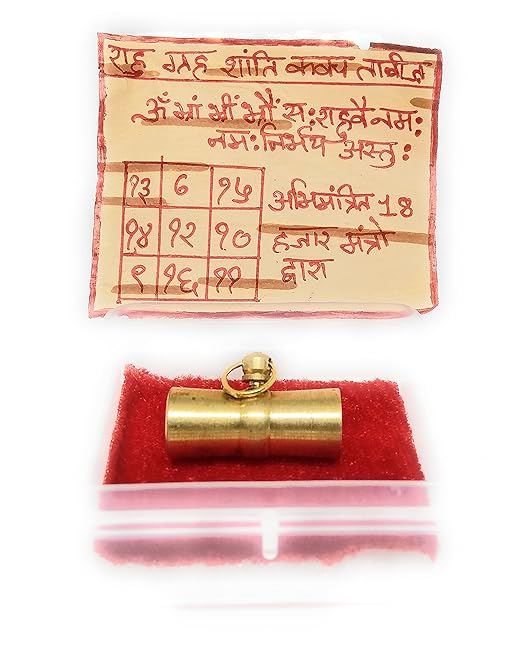 राहु ग्रह शांति कवच ताबीज
ॐ भ्रां भ्रीं भ्रौं स: राहवै नम:
नम: निर्भय अस्तु:
१३ ८ १५
१४ १२ १०
९ १६ ११
अभिमंत्रित 18
हजार मंत्रो
द्वारा